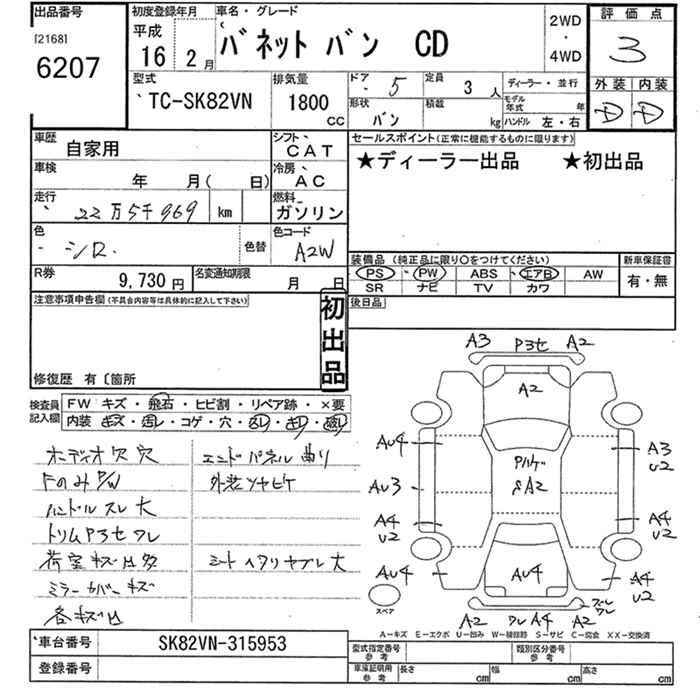 出品番号 [2168] 6207
初度登録年月 平成 16 2月
車名・グレード バネット バン CD
2WD ・ 4WD
評価点 3
外装 D 内装 D
型式 TC-SK82VN
排気量 1800 CC
ドア 5
定員 3人
ディーラー・並行
形状 バン
積載 kg
モデル年式 年
ハンドル 左・右
車歴 自家用
シフト CAT
セールスポイント(正常に機能するものに限ります)
★ディーラー出品 ★初出品
車検 年 月( 日)
冷房 AC
走行 22万5千969 km
燃料 ガソリン
色 シロ
色替
色コード A2W
装備品 (純正品に限り○をつけてください)
PS PW ABS エアB AW
SR ナビ TV カワ
新車保証書 有・無
R券 9,730円
名変通知期限 月 日
後日品
注意事項申告欄(不具合内容等は具体的に記入して下さい)
初出品
修復歴 有〔箇所
検査員記入欄
FW キズ・飛石・ヒビ割・リペア跡・×要
内装 キズ・汚レ・コゲ・穴・スレ・キレ・破レ
オーディオ欠穴 エンドパネル曲り
FのみP/W 外装ツヤビケ
ハンドルスレ大
トリムP3セワレ
荷室キズ凹多 シートヘタリヤブレ大
ミラーカバーキズ
各キズ凹
A3 P3セ A2
A2
AU4
A3
U2
Pハゲ
&A2
AU3
A4
U2
A4
U2
AU4
AU4
A4
U2
スペア
A2 ワレ A4 A2
ズレ
ワレ
A-キズ E-エクボ U-凹み W-補修跡 S-サビ C-腐食 XX-交換済
車台番号 SK82VN-315953
登録番号
型式指定番号 参考
類別区分番号 参考
車庫証明用 参考
長さ cm 幅 cm 高さ cm